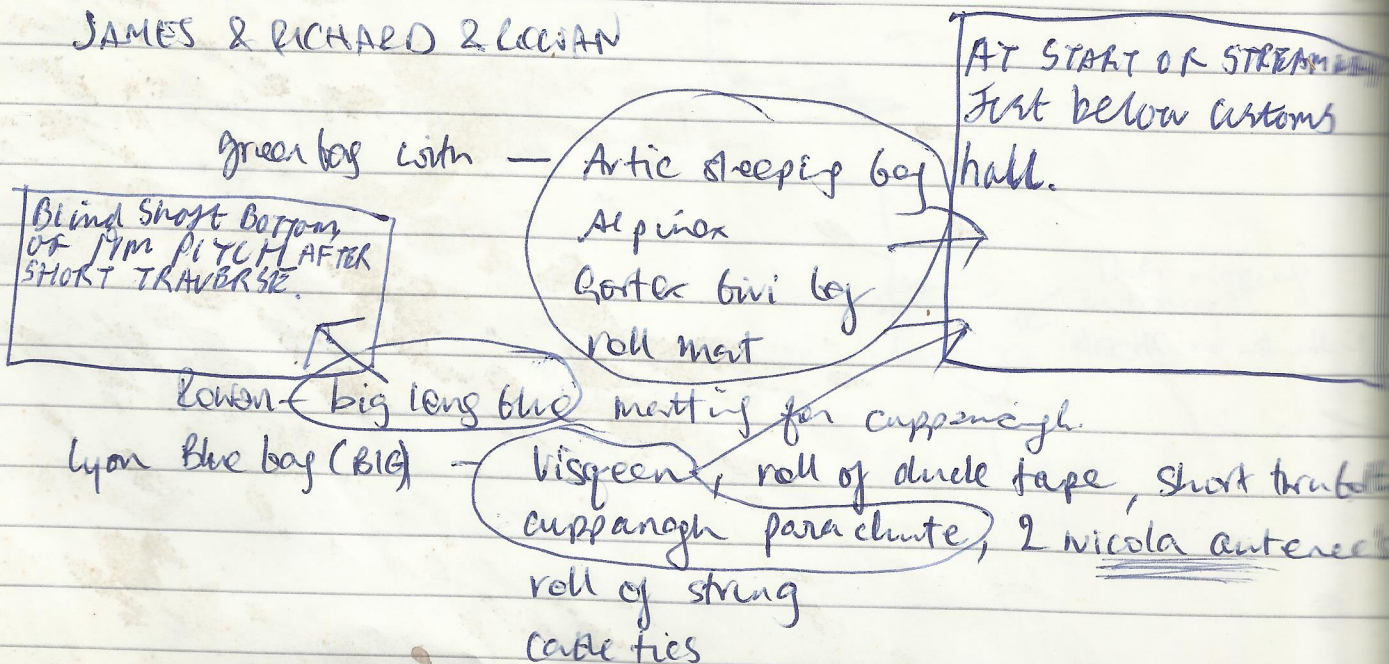 JAMES & RICHARD & ROWAN
AT START OF STREAM
Just below customs
hall.
green bag with — Artic sleeping bag
Alpinox
Gortex bivi bag
roll mat
Blind Shaft Bottom
OF PITCH AFTER
SHORT TRAVERSE.
Rowan - big long blue matting for cuppanagh
Lyon Blue bag (BIG) - Visqeen, roll of duck tape, short
cuppanagh parachute, 2 nicola
roll of string
cable ties